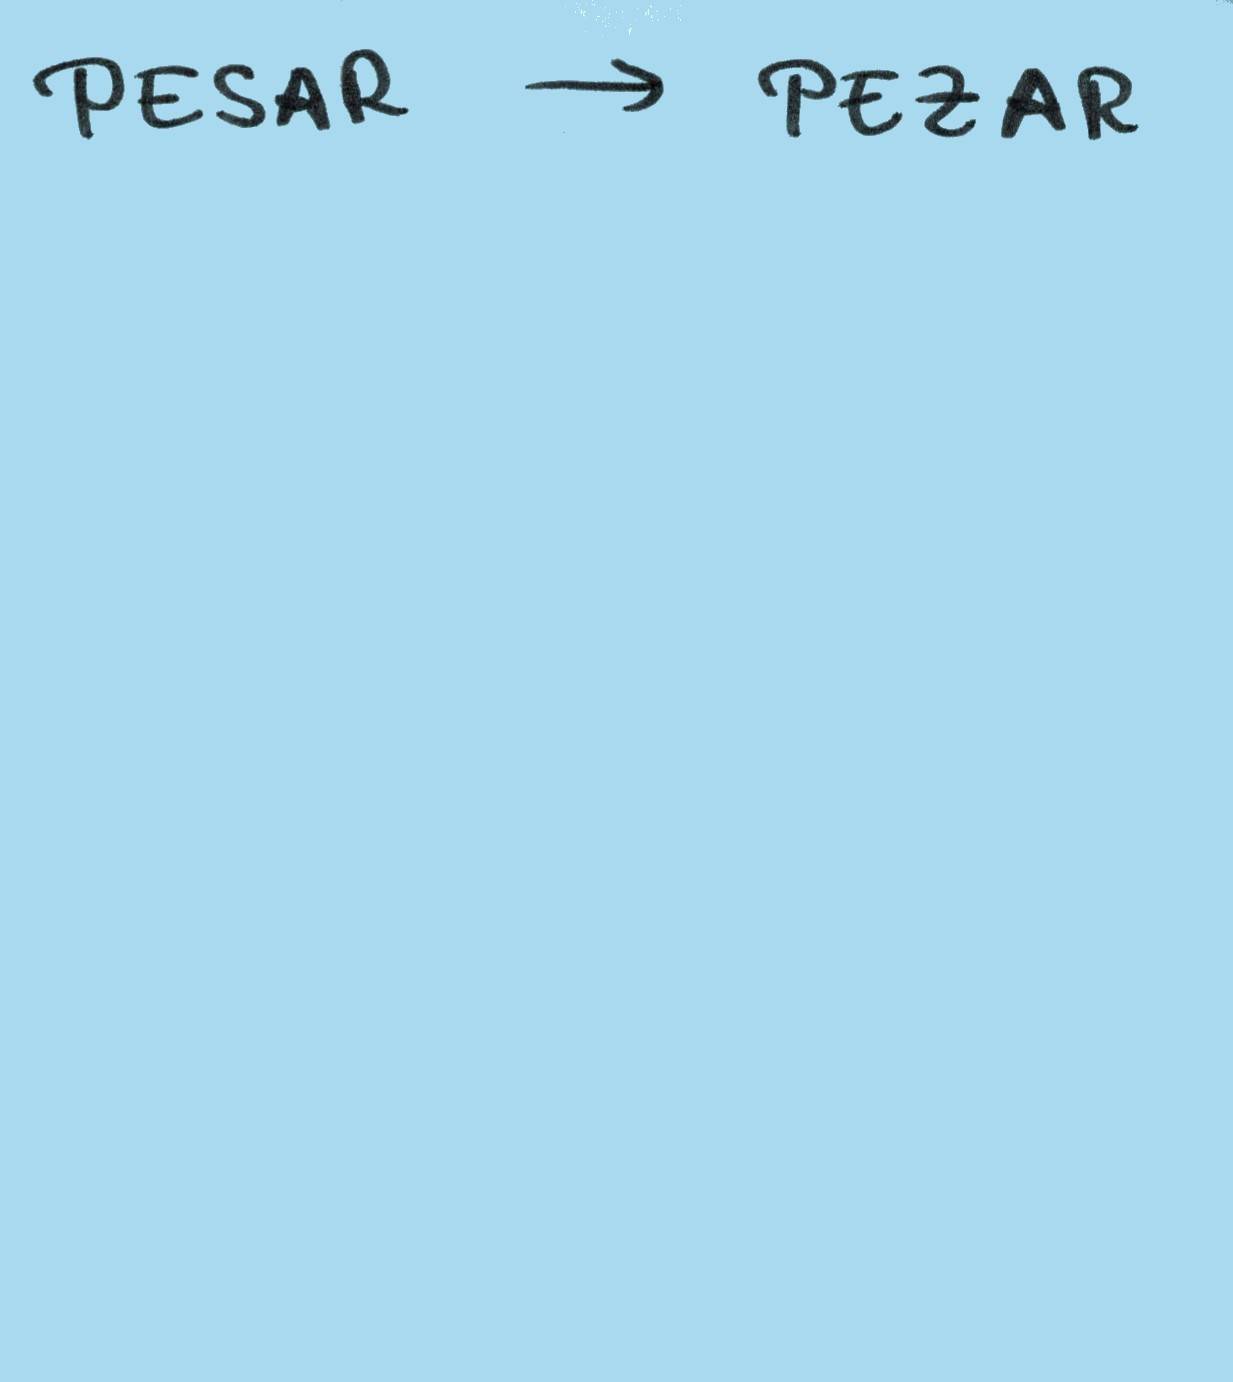 PESAR → PEZAR